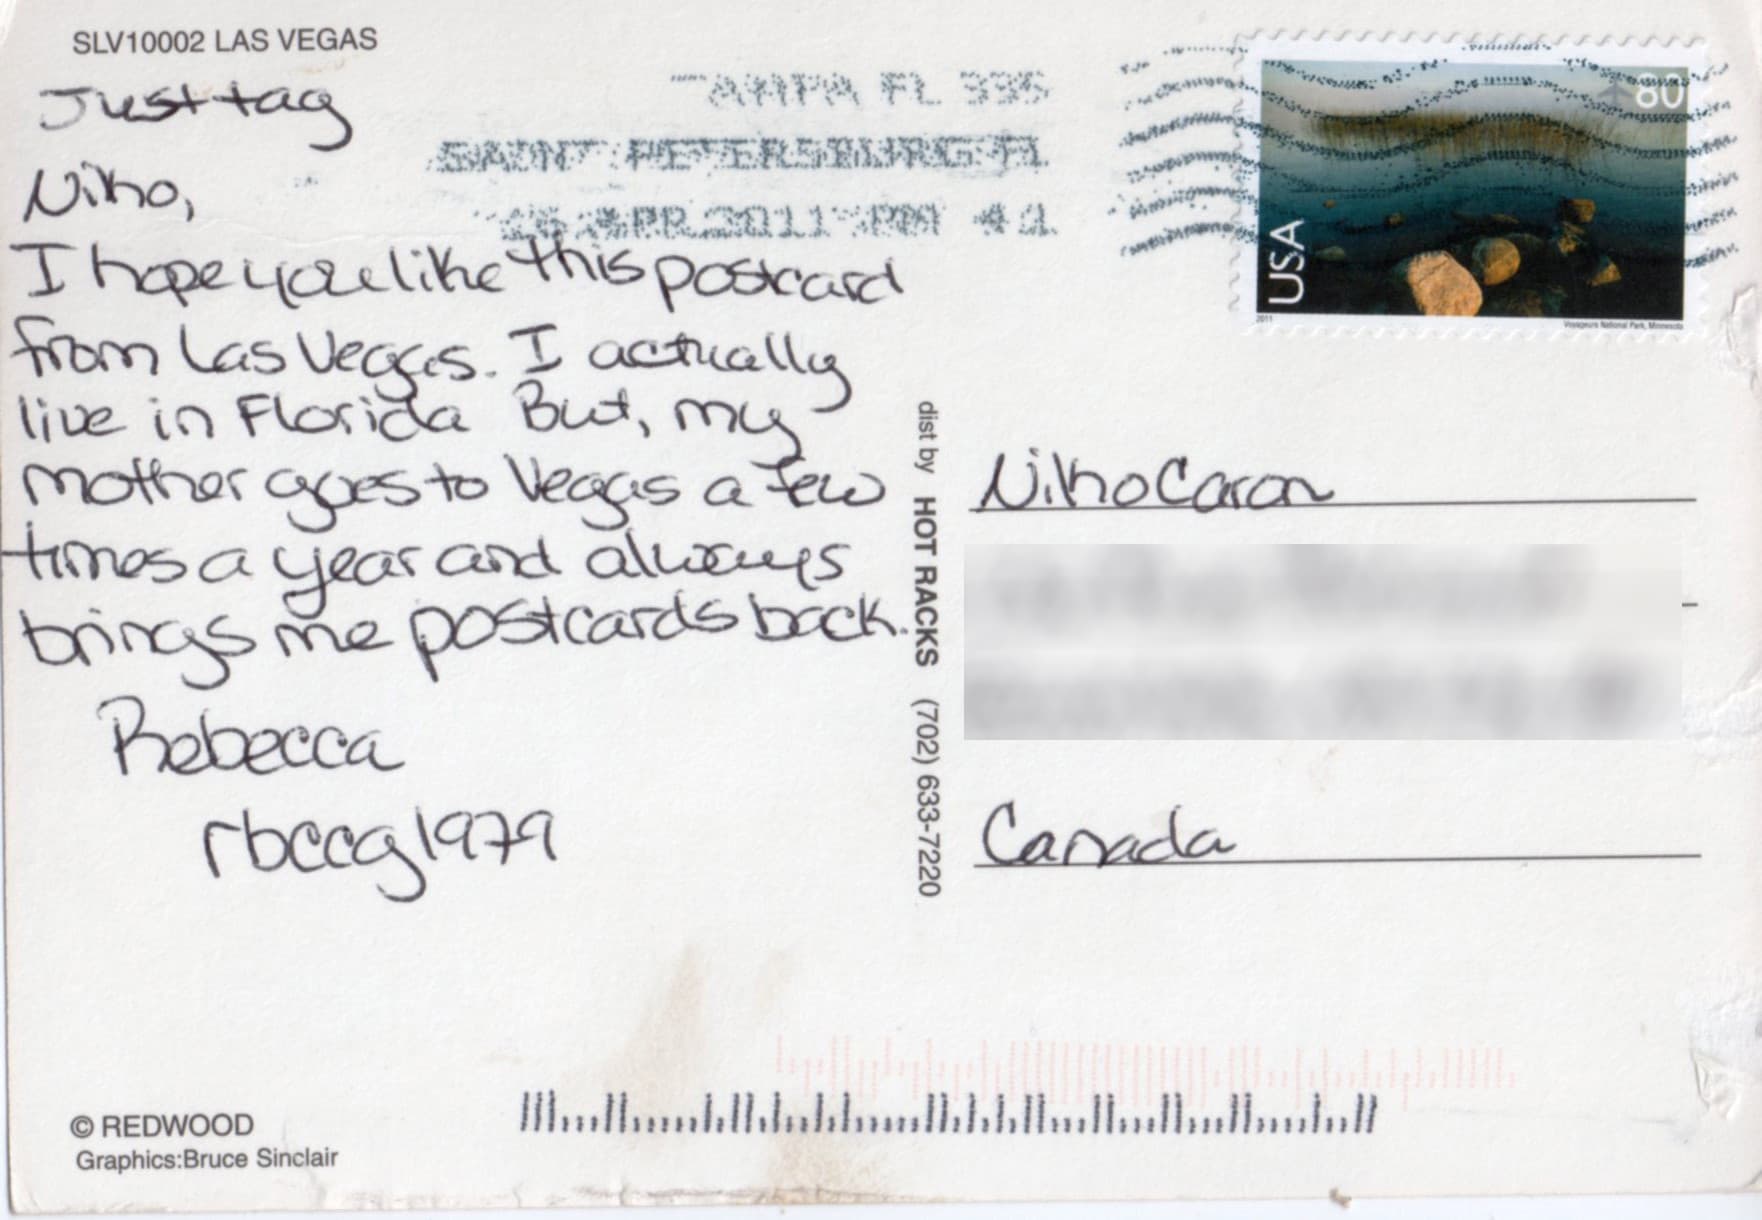 SLV10002 LAS VEGAS
Just tag
Niko,
I hope you like this postcard
from Las Vegas. I actually
live in Florida But, my
mother goes to Vegas a few
times a year and always
brings me postcards back.
Rebecca
rbccg1979
© REDWOOD
Graphics:Bruce Sinclair
TAMPA FL 335
SAINT PETERSBURG FL
APR 2011 PM 4 1
dist by HOT RACKS (702) 633-7220
80
USA
2011
Voyageurs National Park, Minnesota
Niko Caron
Canada